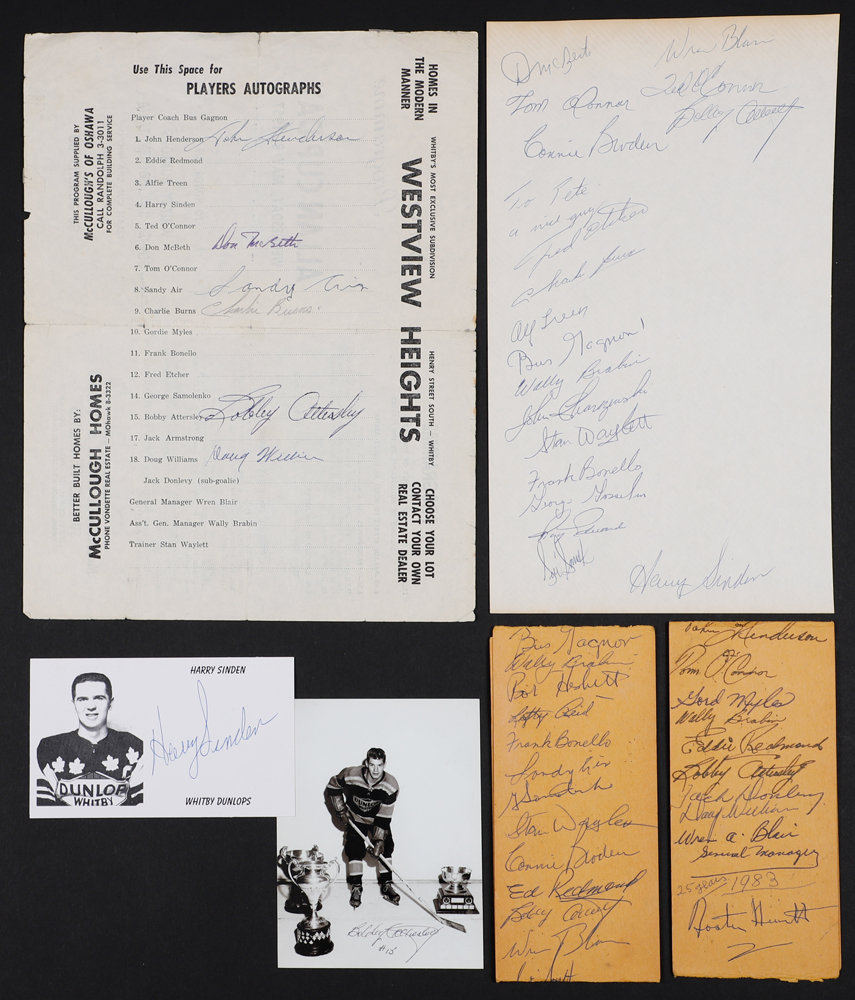 Use This Space for
PLAYERS AUTOGRAPHS
Player Coach Bus Gagnon
1. John Henderson John Henderson
2. Eddie Redmond
3. Alfie Treen
4. Harry Sinden
5. Ted O'Connor
6. Don McBeth Don McBeth
7. Tom O'Connor
8. Sandy Air Sandy Air
9. Charlie Burns Charlie Burns
10. Gordie Myles
11. Frank Bonello
12. Fred Etcher
14. George Samolenko
15. Bobby Attersley Bobby Attersley
17. Jack Armstrong
18. Doug Williams Doug Williams
Jack Donlevy (sub-goalie)
General Manager Wren Blair
Ass't. Gen. Manager Wally Brabin
Trainer Stan Waylett
THIS PROGRAM SUPPLIED BY
McCULLOUGH'S OF OSHAWA
CALL RANDOLPH 3-3011
FOR COMPLETE BUILDING SERVICE
BETTER BUILT HOMES BY:
McCULLOUGH HOMES
PHONE VONDETTE REAL ESTATE — MOhawk 8-3322
HOMES IN
THE MODERN
MANNER
WHITBY'S MOST EXCLUSIVE SUBDIVISION
WESTVIEW HEIGHTS
HENRY STREET SOUTH — WHITBY
CHOOSE YOUR LOT
CONTACT YOUR OWN
REAL ESTATE DEALER
D McBeth
Wren Blair
Tom O'Connor
Ted O'Connor
Bobby Attersley
Connie Broden
To Pete
a nice guy
Fred Etcher
Charlie Burns
Alf Treen
Bus Gagnon
Wally Brabin
Stan Waylett
Frank Bonello
George Gosselin
Sid Smith
Harry Sinden
HARRY SINDEN
Harry Sinden
DUNLOP
WHITBY
WHITBY DUNLOPS
Bobby Attersley
#15
Bus Gagnon
Wally Brabin
Bob Hesketh
Frank Bonello
Sandy Air
Stan Waylett
Connie Broden
Ed Redmond
Bobby Attersley
Wren Blair
Sid Smith
John Henderson
Tom O'Connor
Gord Myles
Wally Brabin
Eddie Redmond
Bobby Attersley
Jack Donlevy
Doug Williams
Wren A. Blair
General Manager
25 years 1983
Foster Hewitt